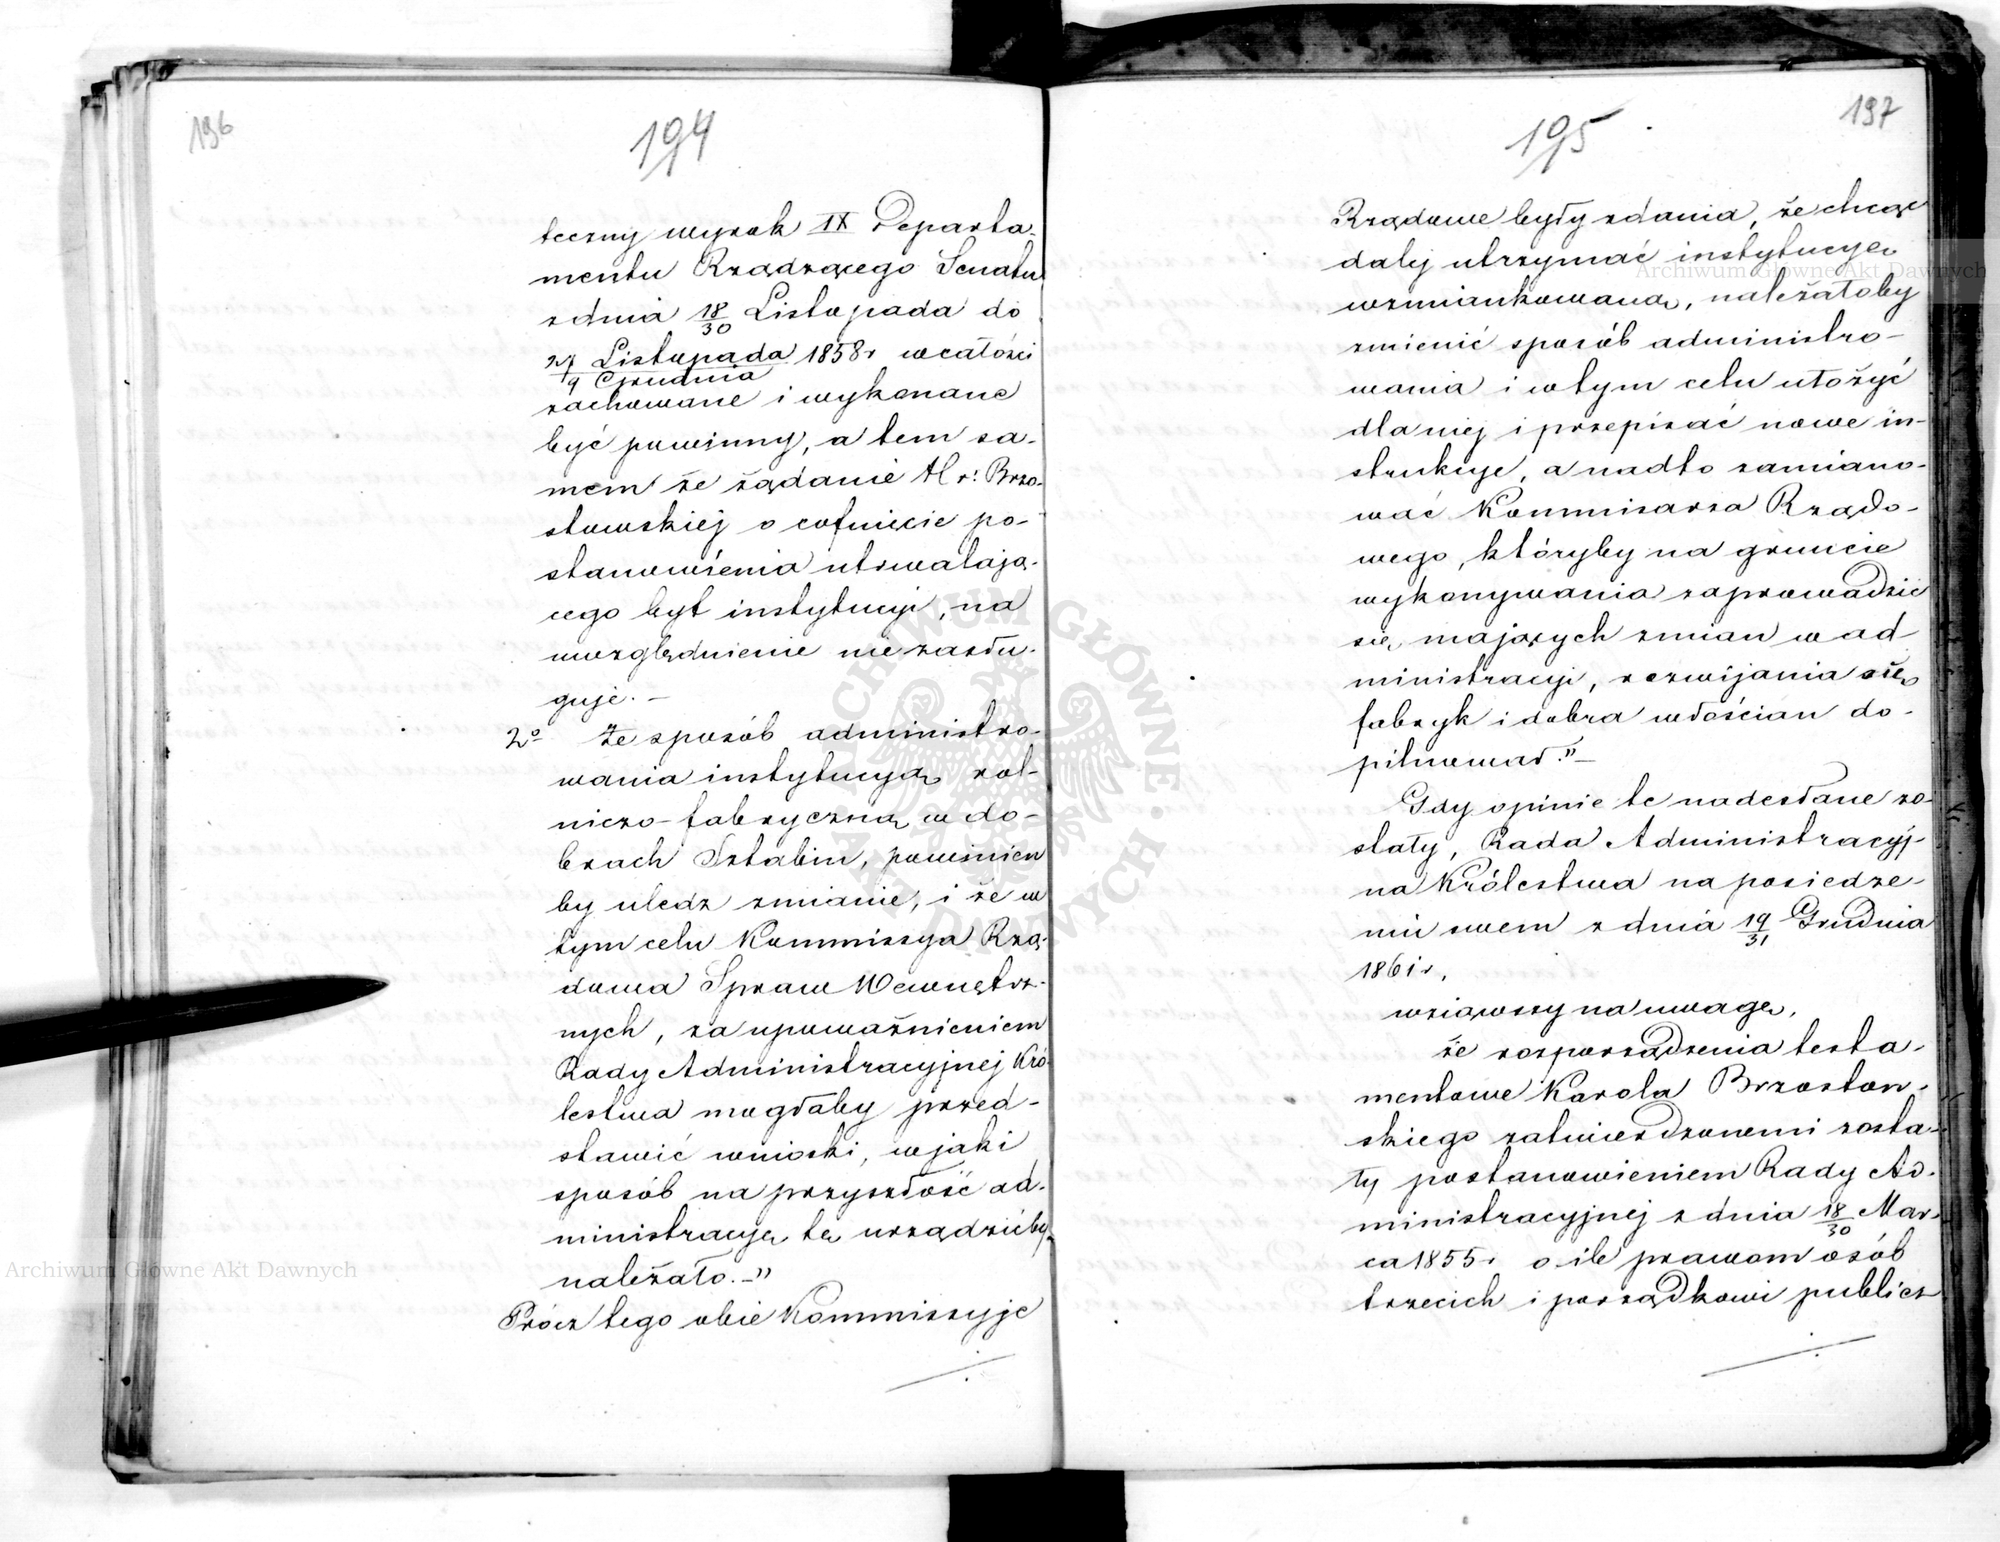 196
194
teczny wyrok IX Departa-
mentu Rządzącego Senatu
z dnia 18/30 Listopada do
27 Listopada/9 Grudnia 1858 r wcałości
zachowane i wykonane
być powinny, a tem sa-
mem że żądanie Hr: Brzo-
stowskiej o cofnięcie po-
stanowienia utrwalają-
cego byt instytucyi, na
uwzględnienie nie zasłu-
guje. —
2o że sposób administro-
wania instytucyą rol-
niczo-fabryczną w do-
brach Sztabin, powinien
by uledz zmianie, i że w
tym celu Kommissya Rzą-
dowa Spraw Wewnętrz-
nych, za upoważnieniem
Rady Administracyjnej Kró-
lestwa mogłaby przed-
stawić wnioski, wjaki
sposób na przyszłość ad-
ministracyę tę urządzićby
należało. —"
Prócz tego obie Kommissyje
197
195
Rządowe były zdania, że chcąc
dalej utrzymać instytucyę
wzmiankowaną, należałoby
zmienić sposób administro-
wania i w tym celu ułożyć
dla niej i przepisać nowe in-
strukcje, a nadto zamiano-
wać Kommisarza Rządo-
wego, któryby na gruncie
wykonywania zaprowadzić
się mających zmian w ad-
ministracyi, rozwijania się
fabryk i dobra włościan do-
pilnował." —
Gdy opinie te nadesłane zo-
stały, Rada Administracyj-
na Królestwa na posiedze-
niu swem z dnia 19/31 Grudnia
1861 r,
wziąwszy na uwagę,
że rozporządzenia testa-
mentowe Karola Brzostow-
skiego zatwierdzonemi zosta-
ły postanowieniem Rady Ad-
ministracyjnej z dnia 18/30 Mar-
ca 1855 r o ile prawom osób
trzecich i porządkowi publicz
Archiwum Główne Akt Dawnych
Archiwum Główne Akt Dawnych
ARCHIWUM GŁÓWNE AKT DAWNYCH